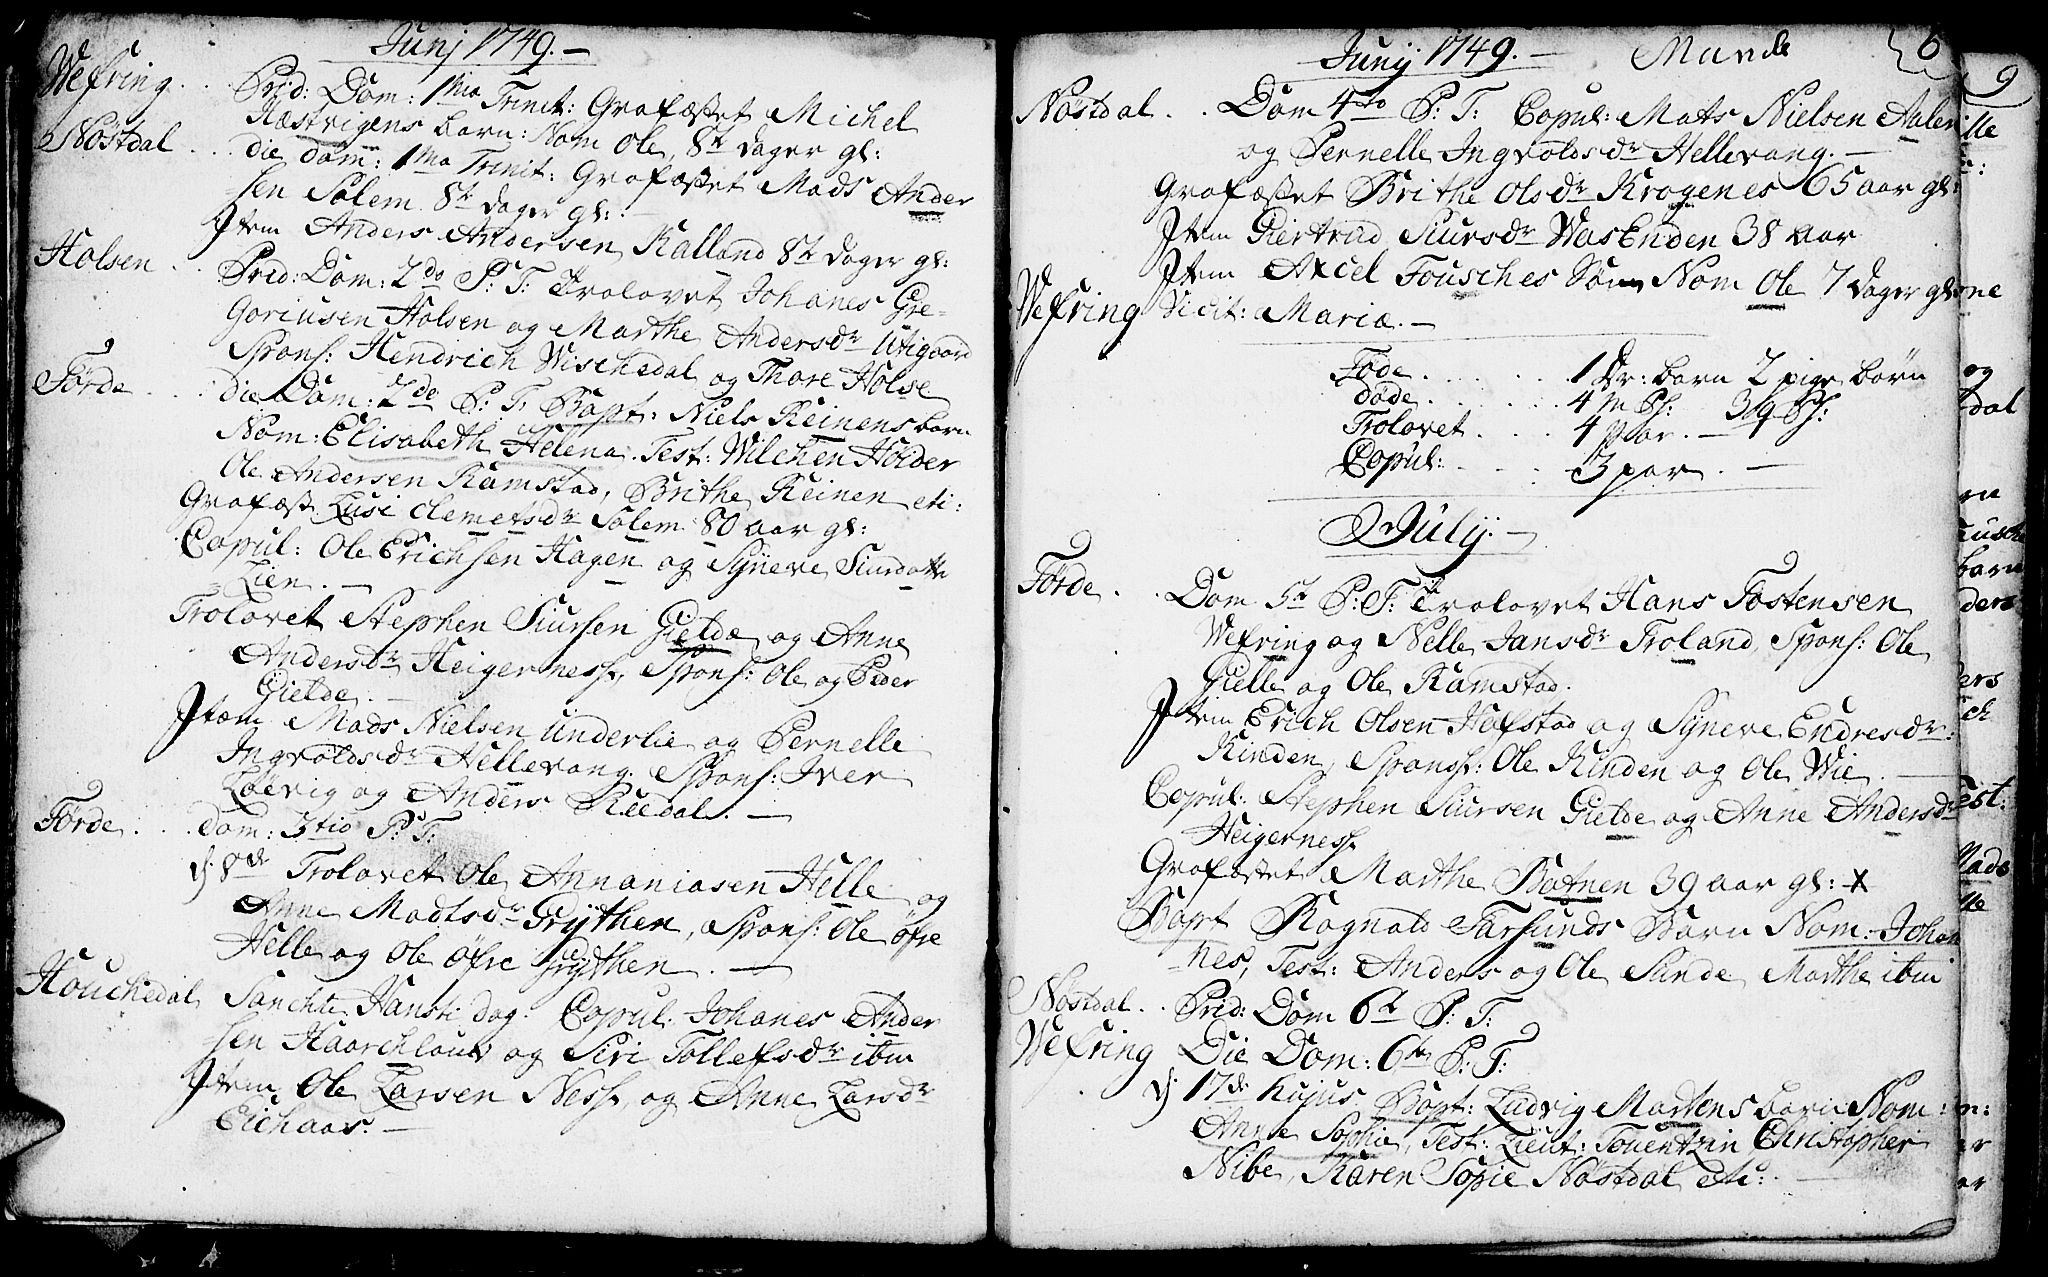 Junj 1749. —
Wefring . . Prid: Dom: 1ma Trinit: Grafæstet Michel
Næstvigens barn: Nom Ole, 8te dager gl:
Nöstdal . . . die dom: 1ma Trinit: Grafæstet Mads Ander
sen Solem 8te dager gl: —
Jtem Anders Andersen Kalland 8te dager gl:
Holsen . . Prid: Dom: 2do P: T: Trolovet Johanes Gre-
goriusen Holsen og Marthe Andersdr Utigaard
Spons: Hendrich Wischedal og Thore Holse
Förde . . . die Dom: 2do P: T: Bapt: Niels Reinens barn
Nom: Elisabeth Helena. Test: Wilchen Holder
Ole Andersen Ramstad, Brithe Reinen etc:
Grafæst Lusi Clemetsdr Solem 80 aar gl:
Copul: Ole Erichsen Hagen og Syneve Siurdatte
Lien. —
Trolovet Stephen Siursen Gielde og Anne
Andersdr Heigerness, Spons: Ole og Peder
Gielde. —
Jtem Mads Nielsen Underlie og Pernelle
Ingvoldsdr Hellevang. Spons: Iver
Löevig og Anders Ruedal. —
Förde . . . dom: 3tio P: T:
d: 8de Trolovet Ole Annaniasen Helle og
Anne Madtsdr Grythen, Spons: Ole öfre
Helle og Ole Öfre Grythen. —
Houchedal Sanchte Hansti dag. Copul: Johanes Ander
sen Haarchlouv og Siri Tollefsdr ibm
Jtem Ole Larsen Ness, og Anne Larsdr
Eichaas. —
Junij 1749. — Munde 6
Nöstdal . . Dom 4to P: T: Copul: Mats Nielsen
og Pernelle Ingvoldsdr Hellevang. —
Grafæstet Brithe Olsdr Krogenes 65 aar gl:
Jtem Giertrud Siursdr WasEnden 38 aar
Jtem Axcel Fousches Sön Nom Ole 7 dager gl:
Wefring Vicit: Mariæ. —
Föde . . . . . . 1 Dr: barn 2 pige börn
döde . . . . . . 4 M Ph: 3 q Ph:
Trolovet . . . . 4 par. —
Copul: . . . . 3 par. —
JUlij. —
Förde . . Dom 5te P: T: Trolovet Hans Tostensen
Wefring og Nelle Jansdr Troland, Spons: Ole
Gielle og Ole Ramstad.
Jtem Erich Olsen Hafstad og Syneve Endresdr:
Kinden, Sponss: Ole Kinden og Ole Wie. —
Copul: Stephen Siursen Gielde og Anne Andersdr
Heigerness
Grafæstet Marthe Botnen 39 aar gl: x
Bapt Ragnald Farsunds Barn Nom: Johan
nes, Test: Anders og Ole Sunde Marthe ibm
Nöstdal . . Prid: Dom 6te P: T:
Wefring Die Dom: 6te P: T:
d: 17de hujus Bapt: Ludvig Martens barn Nom:
Anne Sophie, Test: Lieut: Touentzin Christopher
Nibe, Karen Sopie Nöstdal etc: —
9